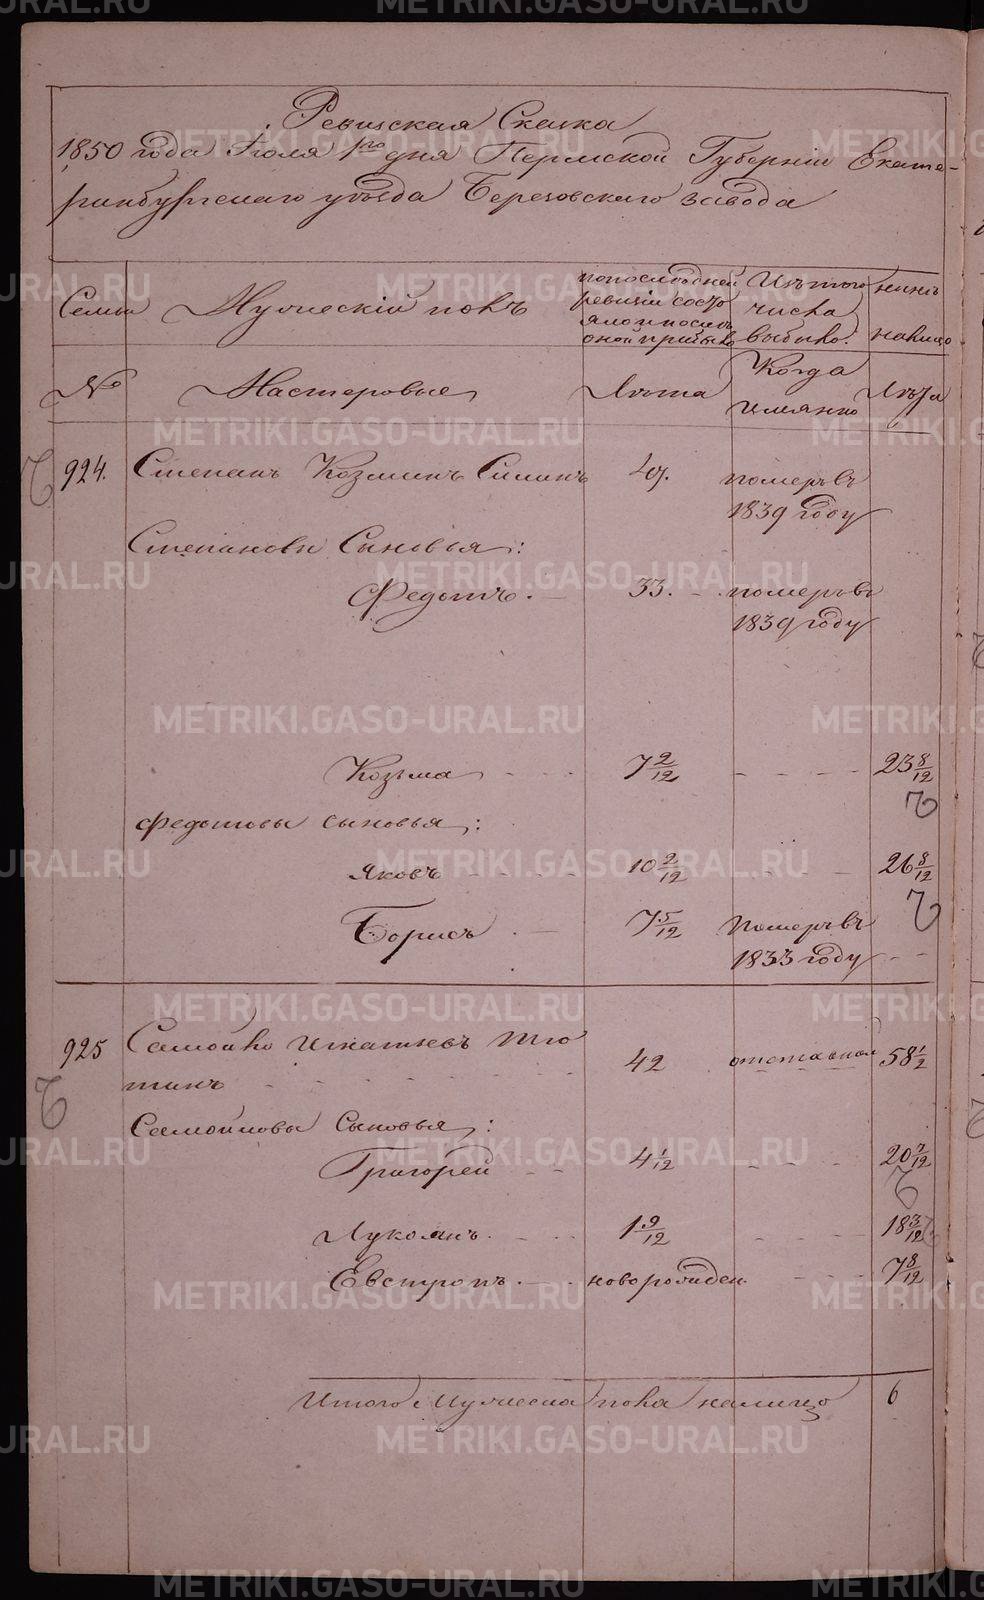 Ревизская Сказка
1850 года Июля 1го дня Пермской Губерніи Екате-
ринбургскаго уѣзда Березовскаго завода
Семьи Мужескій полъ
по последней ревизіи состояло и после оной прибыло
Изъ того числа выбыло.
нынѣ налицо
№ Мастеровые Лѣта Когда имянно Лѣта
924. Степанъ Козминъ Силинъ 49. померъ въ 1839 году
Степановы Сыновья:
Федотъ. 33. померъ въ 1839 году
Козьма 7 2/12 23 8/12
Федотовы сыновья:
Яковъ 10 2/12 26 8/12
Борисъ 7 5/12 Померъ въ 1833 году
925 Самойло Игнатьевъ Тю
тинъ 42 отставной 58 1/2
Самойловы Сыновья:
Григорей 4 1/12 20 7/12
Лукоянъ. 1 9/12 18 3/12
Евстропъ. новорожден. 7 8/12
Итого Мужеска пола налицо 6
METRIKI.GASO-URAL.RU